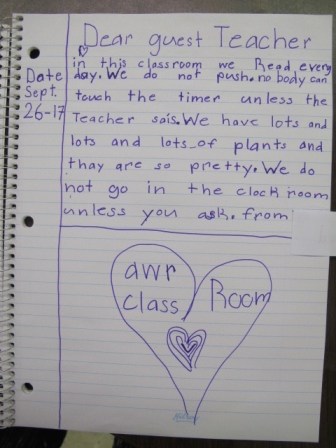 Dear guest Teacher
in this classroom we Read every
Date day. We do not push. no body can
Sept. touch the timer unless the
26-17 Teacher sais. We have lots and
lots and lots of plants and
thay are so pretty. We do
not go in the clock room
unless you ask. from
awr
class Room